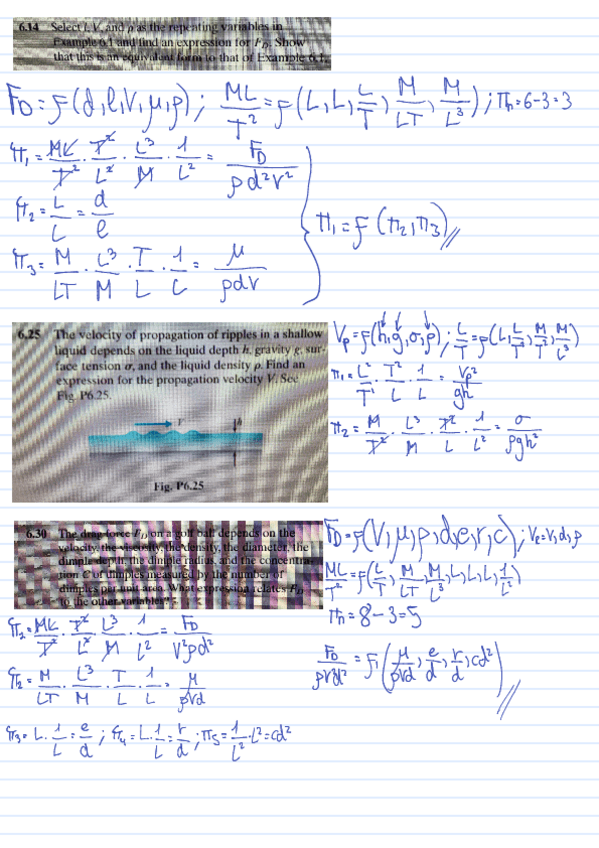 6.14 Select l, V, and ρ as the repeating variables in
Example 6.1 and find an expression for F_D. Show
that this is an equivalent form to that of Example 6.1.
F_D = f(d, l, V, μ, ρ) ; ML/T² = f(L, L, L/T, M/LT, M/L³) ; πn = 6-3 = 3
π₁ = ML/T² · T²/L² · L³/M · 1/L² = F_D/ρd²V²
π₂ = L/L = d/l
π₁ = f(π₂, π₃) //
π₃ = M/LT · L³/M · T/L · 1/L = μ/ρdV
6.25 The velocity of propagation of ripples in a shallow
liquid depends on the liquid depth h, gravity g, sur-
face tension σ, and the liquid density ρ. Find an
expression for the propagation velocity V. See
Fig. P6.25.
V
h
Fig. P6.25
Vp = f(h, g, σ, ρ) ; L/T = f(L, L/T², M/T², M/L³)
π₁ = L²/T² · T²/L · 1/L = Vp²/gh
π₂ = M/T² · L³/M · T²/L · 1/L² = σ/ρgh²
6.30 The drag force F_D on a golf ball depends on the
velocity, the viscosity, the density, the diameter, the
dimple depth, the dimple radius, and the concentra-
tion C of dimples measured by the number of
dimples per unit area. What expression relates F_D
to the other variables?
F_D = f(V, μ, ρ, d, e, r, c) ; Ve = V, d, ρ
ML/T² = f(L/T, M/LT, M/L³, L, L, L, 1/L²)
πn = 8-3 = 5
π₁ = ML/T² · T²/L² · L³/M · 1/L² = F_D/V²ρd²
π₂ = M/LT · L³/M · T/L · 1/L = μ/ρVd
F_D/ρV²d² = f₁(μ/ρVd, e/d, r/d, cd²) //
π₃ = L · 1/L = e/d ; π₄ = L · 1/L = r/d ; π₅ = 1/L² · L² = cd²